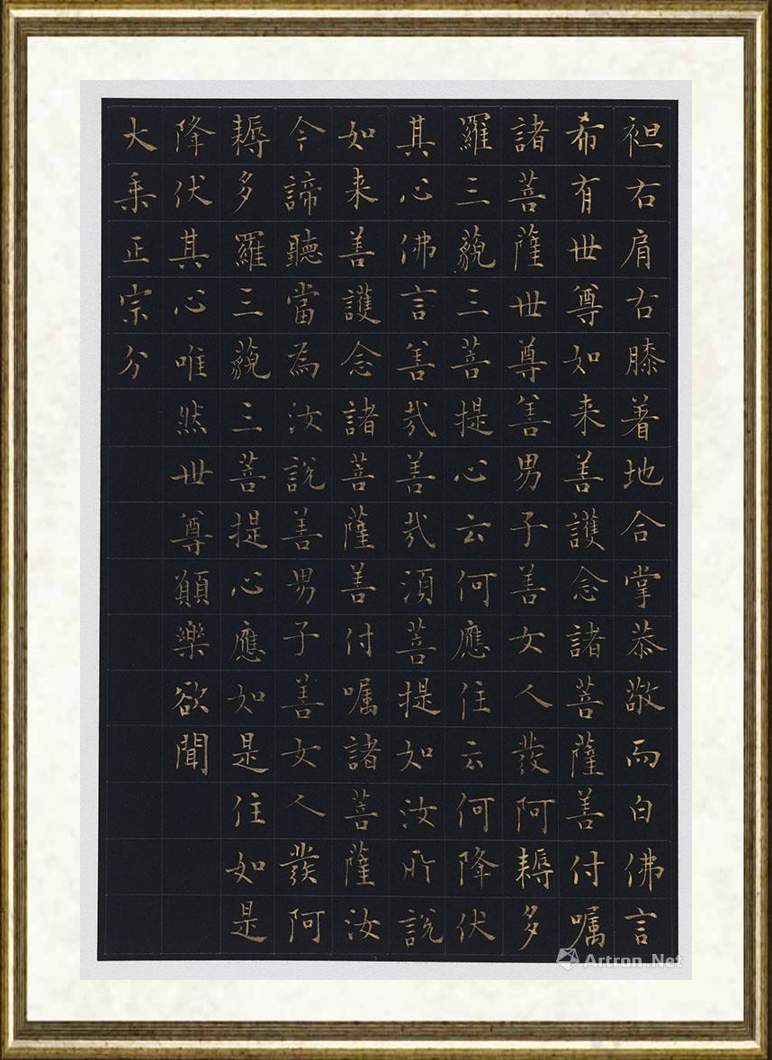 袒右肩右膝着地合掌恭敬而白佛言
希有世尊如来善護念諸菩薩善付嘱
諸菩薩世尊善男子善女人發阿耨多
羅三藐三菩提心云何應住云何降伏
其心佛言善哉善哉須菩提如汝所說
如来善護念諸菩薩善付嘱諸菩薩汝
今諦聽當為汝說善男子善女人發阿
耨多羅三藐三菩提心應如是住如是
降伏其心唯然世尊願樂欲聞
大乘正宗分
Artron.Net